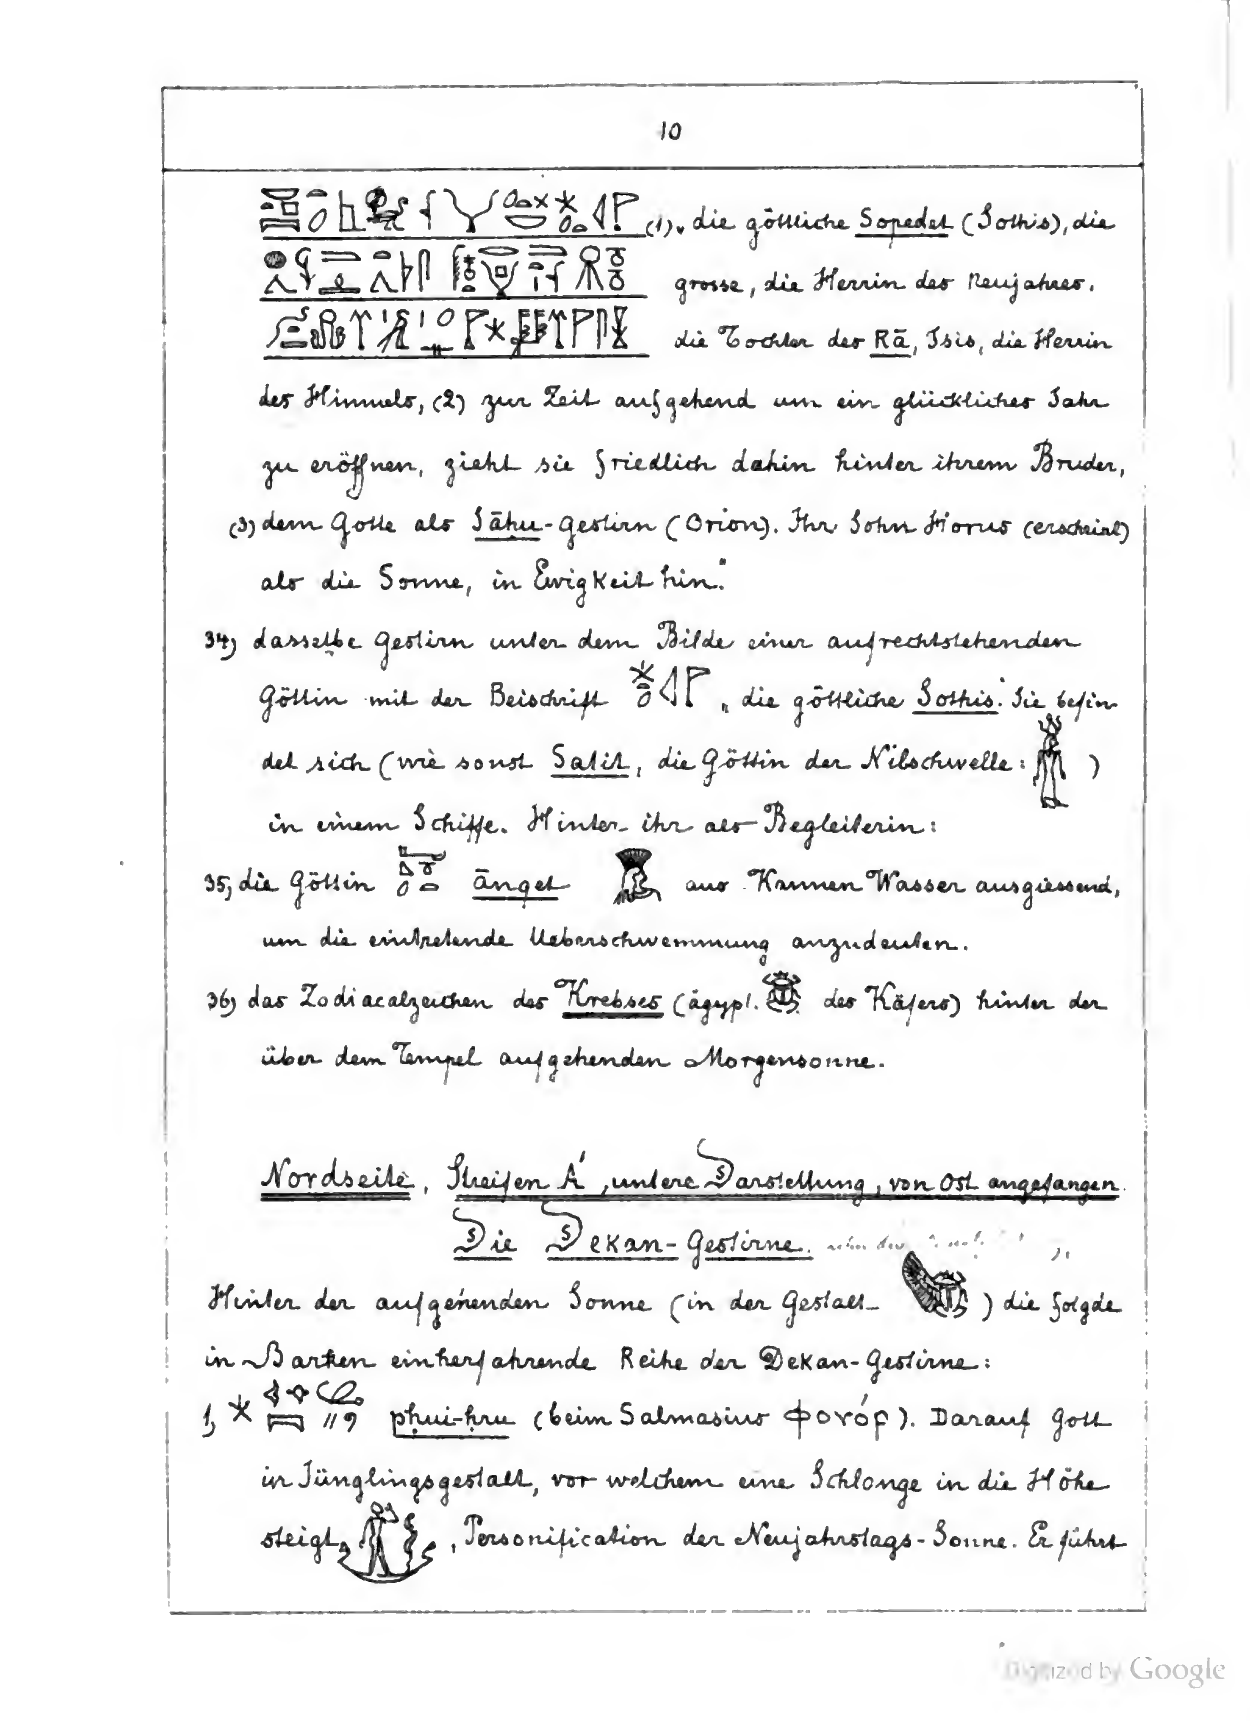 10
(1) „die göttliche Sopedet (Sothis), die
grosse, die Herrin des Neujahres,
die Tochter des Rā, Isis, die Herrin
des Himmels, (2) zur Zeit aufgehend um ein glückliches Jahr
zu eröffnen, zieht sie friedlich dahin hinter ihrem Bruder,
(3) dem Gotte als Sāḥu-Gestirn (Orion). Ihr Sohn Horus (erscheint)
als die Sonne, in Ewigkeit hin."
34) dasselbe Gestirn unter dem Bilde einer aufrechtstehenden
Göttin mit der Beischrift „die göttliche Sothis". Sie befin-
det sich (wie sonst Satit, die Göttin der Nilschwelle: )
in einem Schiffe. Hinter ihr als Begleiterin:
35) die Göttin ānqet aus Kannen Wasser ausgiessend,
um die eintretende Ueberschwemmung anzudeuten.
36) das Zodiacalzeichen des Krebses (ägypt. des Käfers) hinter der
über dem Tempel aufgehenden Morgensonne.
Nordseite, Streifen A', untere Darstellung, von Ost angefangen.
Die Dekan-Gestirne.
Hinter der aufgehenden Sonne (in der Gestalt ) die folgde
in Barken einherfahrende Reihe der Dekan-Gestirne:
1) pḥui-ḥru (beim Salmasius Φουόρ). Darauf Gott
in Jünglingsgestalt, vor welchem eine Schlange in die Höhe
steigt, , Personification der Neujahrstags-Sonne. Er führt
Digitized by Google